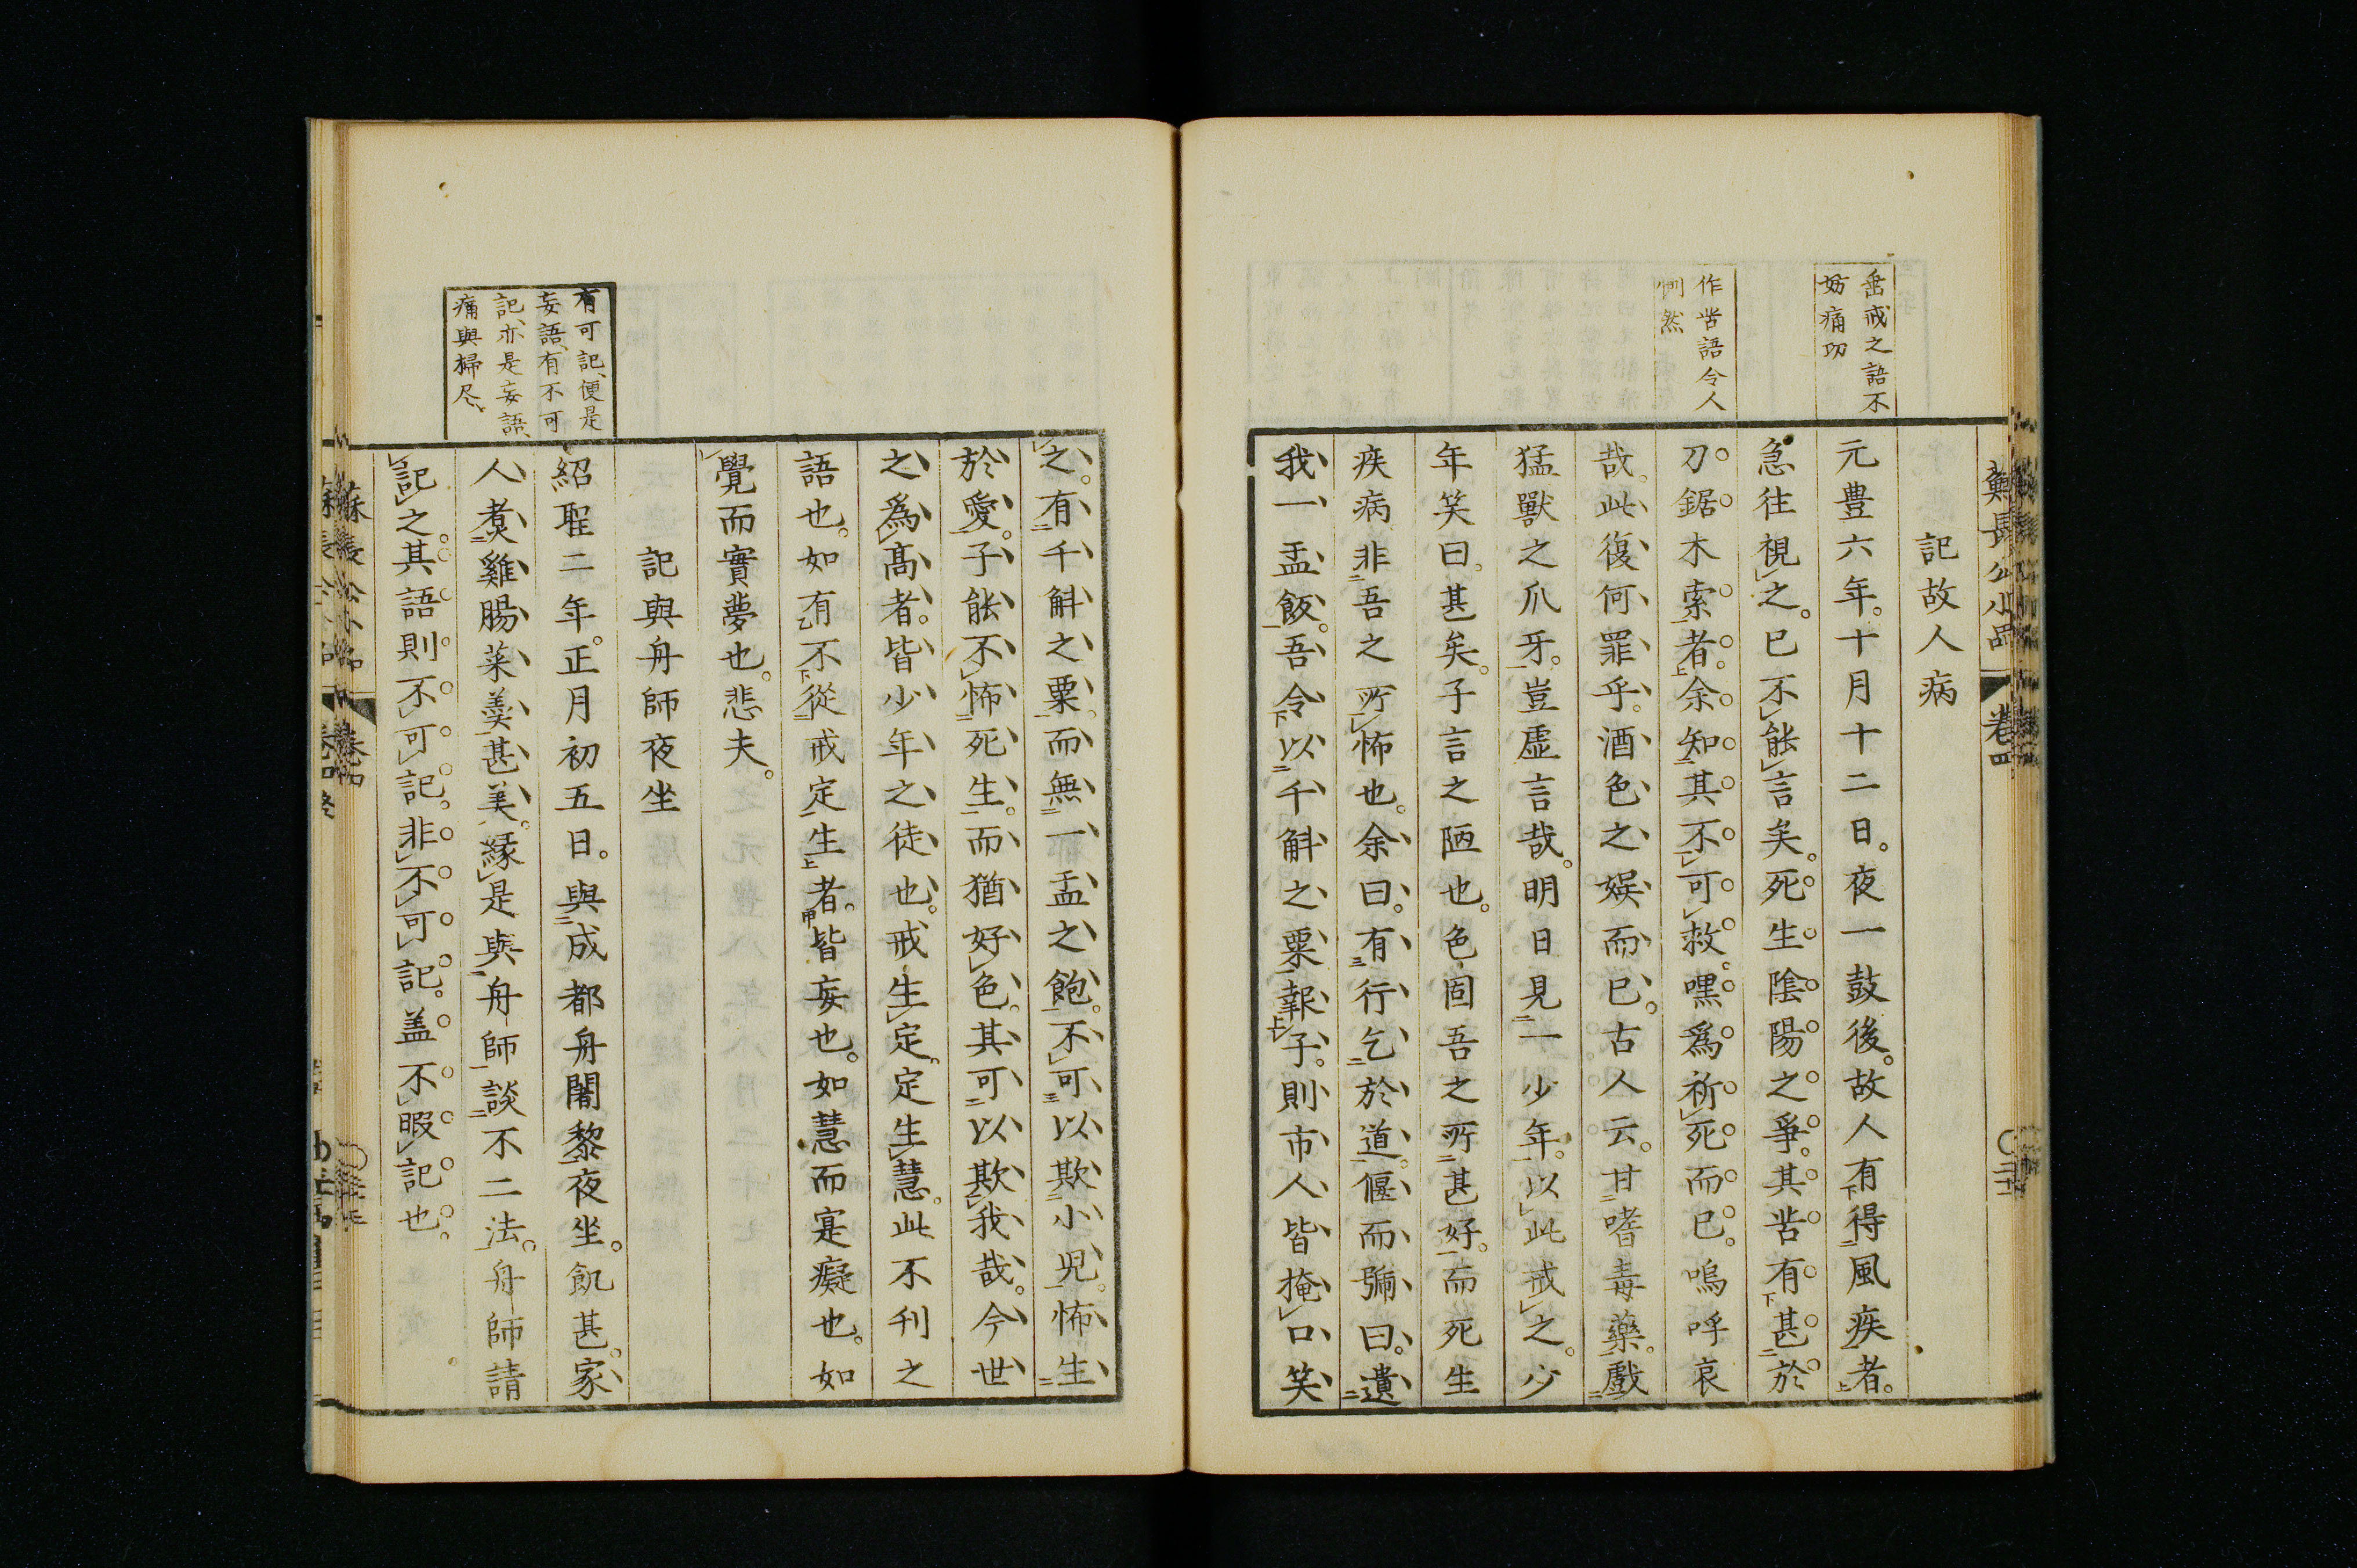 蘇長公小品
卷四
垂戒之語不
妨痛切
作苦語令人
惻然
記故人病
元豊六年。十月十二日。夜一鼓後。故人有得風疾者。
急往視之。已不能言矣。死生陰陽之爭。其苦有甚於
刀鋸木索者。余知其不可救。嘿爲祈死而已。嗚呼哀
哉。此復何罪乎。酒色之娱而已。古人云。甘嗜毒藥。戲
猛獸之爪牙。豈虛言哉。明日見一少年。以此戒之。少
年笑曰。甚矣。子言之陋也。色固吾之所甚好。而死生
疾病非吾之所怖也。余曰。有行乞於道。偃而號曰。遺
我一盂飯。吾令以千斛之粟報子。則市人皆掩口笑
有可記、便是
妄語、有不可
記、亦是妄語、
痛與掃尽、
之。有千斛之粟。而無一盂之飽。不可以欺小児。怖生
於愛。子能不怖死生。而猶好色。其可以欺我哉。今世
之爲高者。皆少年之徒也。戒生定。定生慧。此不刊之
語也。如有不從戒定生者。皆妄也。如慧而寔癡也。如
覺而實夢也。悲夫。
記與舟師夜坐
紹聖二年。正月初五日。與成都舟闍黎夜坐。飢甚。家
人煮雞腸菜羹。甚美。緣是與舟師談不二法。舟師請
記之。其語則不可記。非不可記。盖不暇記也。
蘇長公小品
卷四